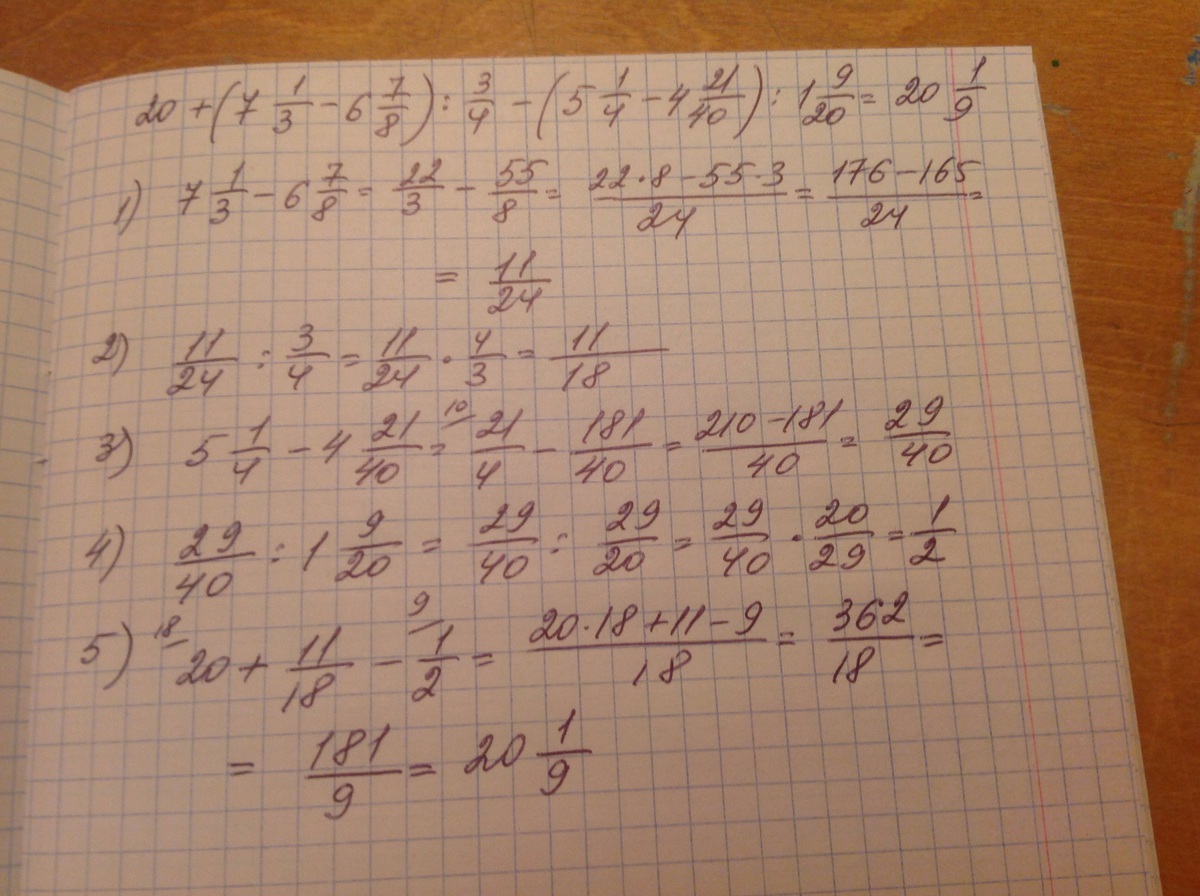 20 + (7 1/3 - 6 7/8) : 3/4 - (5 1/4 - 4 21/40) : 1 9/20 = 20 1/9
1) 7 1/3 - 6 7/8 = 22/3 - 55/8 = (22·8 - 55·3)/24 = (176 - 165)/24 =
= 11/24
2) 11/24 : 3/4 = 11/24 · 4/3 = 11/18
3) 5 1/4 - 4 21/40 = 10/ 21/4 - 181/40 = (210 - 181)/40 = 29/40
4) 29/40 : 1 9/20 = 29/40 : 29/20 = 29/40 · 20/29 = 1/2
5) 18/ 20 + 11/18 - 9/ 1/2 = (20·18 + 11 - 9)/18 = 362/18 =
= 181/9 = 20 1/9